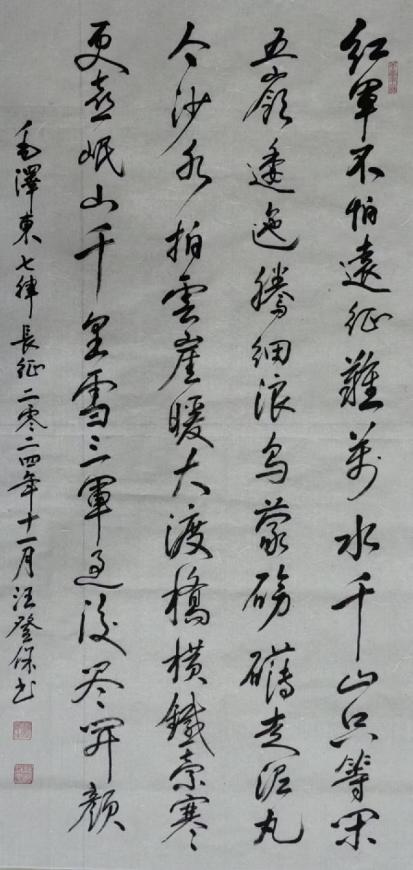 紅軍不怕遠征難萬水千山只等閑
五嶺逶迤騰細浪烏蒙磅礴走泥丸
金沙水拍雲崖暖大渡橋橫鐵索寒
更喜岷山千里雪三軍過後尽開顏
毛澤東七律長征二零二四年十一月汪登保书